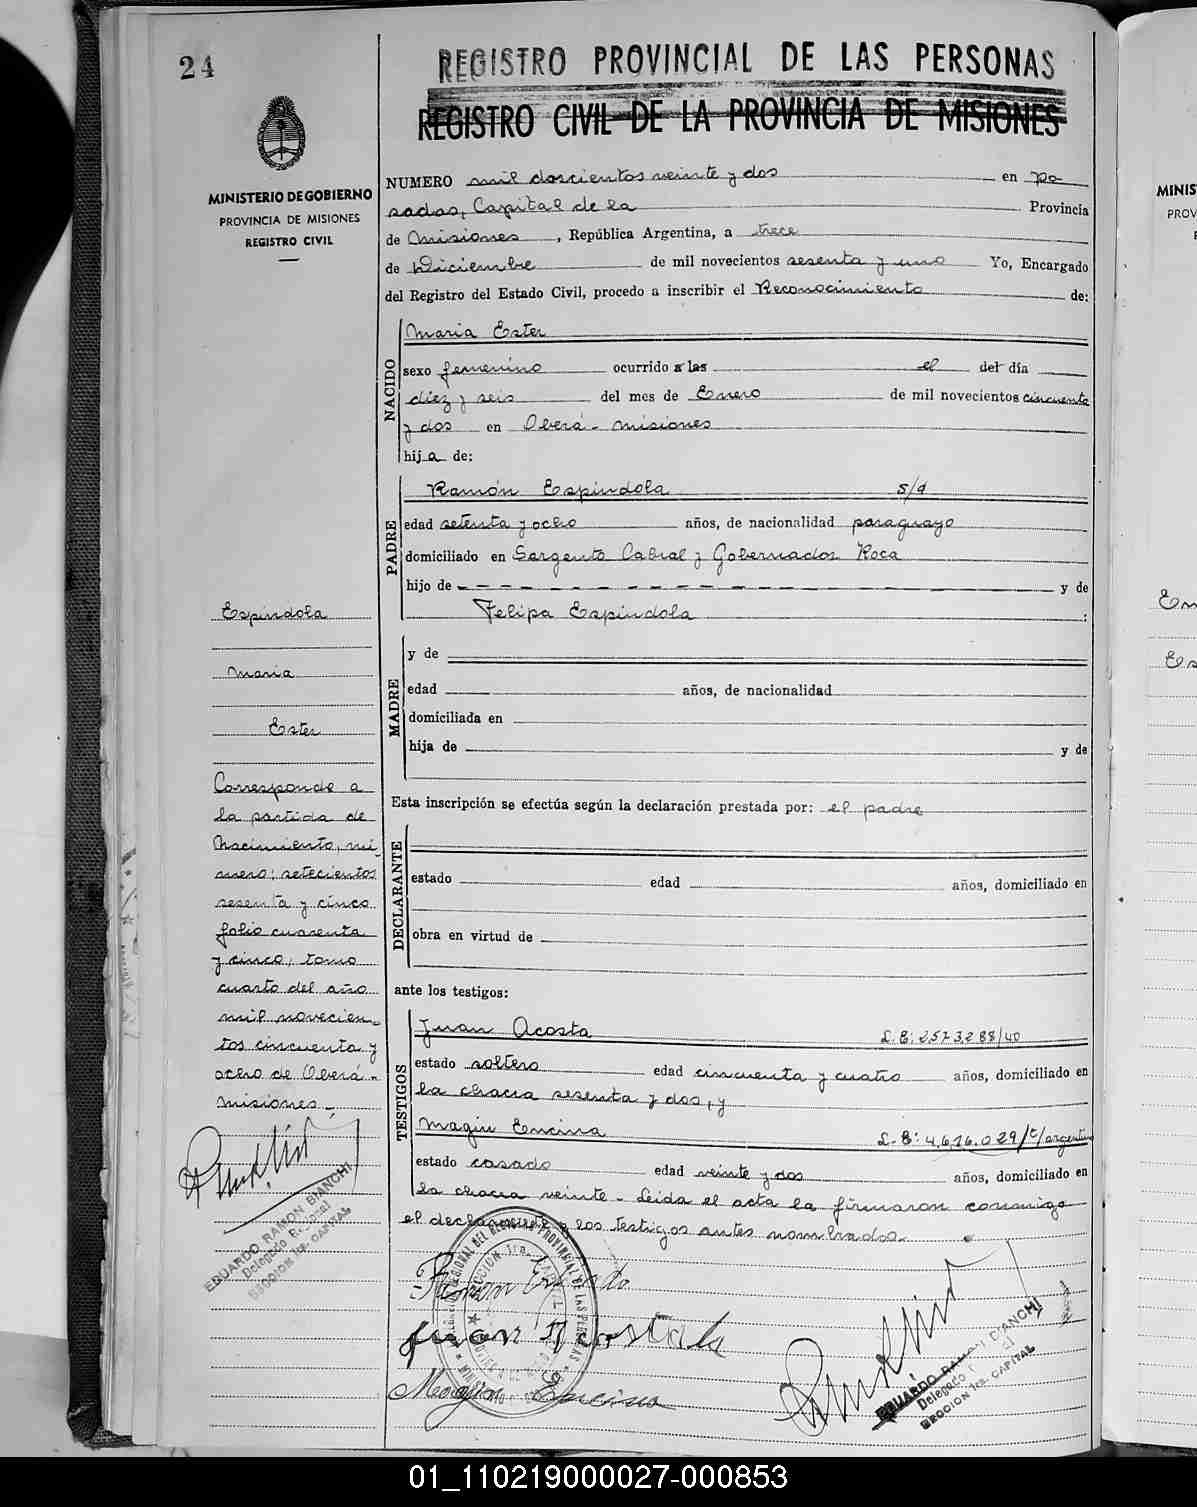 24
REGISTRO PROVINCIAL DE LAS PERSONAS
REGISTRO CIVIL DE LA PROVINCIA DE MISIONES
MINISTERIO DE GOBIERNO
PROVINCIA DE MISIONES
REGISTRO CIVIL
NUMERO mil doscientos veinte y dos en Po
sadas, Capital de la Provincia
de Misiones, República Argentina, a trece
de Diciembre de mil novecientos sesenta y uno Yo, Encargado
del Registro del Estado Civil, procedo a inscribir el Reconocimiento de:
NACIDO
Maria Ester
sexo femenino ocurrido a las el del día
diez y seis del mes de Enero de mil novecientos cincuenta
y dos en Oberá - Misiones
hija de:
PADRE
Ramón Espíndola s/d
edad setenta y ocho años, de nacionalidad paraguayo
domiciliado en Sargento Cabral y Gobernador Roca
hijo de y de
Felipa Espíndola
MADRE
y de
edad años, de nacionalidad
domiciliada en
hija de y de
Esta inscripción se efectúa según la declaración prestada por: el padre
DECLARANTE
estado edad años, domiciliado en
obra en virtud de
ante los testigos:
TESTIGOS
Juan Acosta L. E: 2573288/40
estado soltero edad cincuenta y cuatro años, domiciliado en
la chacra sesenta y dos, y
Magin Encina L. E: 4,616.029/t/argentino
estado casado edad veinte y dos años, domiciliado en
la chacra veinte - Leida el acta la firmaron conmigo
el declarante y los testigos antes nombrados.
Espíndola
Maria
Ester
Corresponde a
la partida de
Nacimiento, nú
mero: setecientos
sesenta y cinco
folio cuarenta
y cinco, tomo
cuarto del año
mil novecien-
tos cincuenta y
ocho de Oberá -
Misiones -
EDUARDO RAMON BIANCHI
Delegado Regional
SECCION 1ra. CAPITAL
Magin Encina
EDUARDO RAMON BIANCHI
Delegado
SECCION 1ra. CAPITAL
MINIS
PROV
01_110219000027-000853